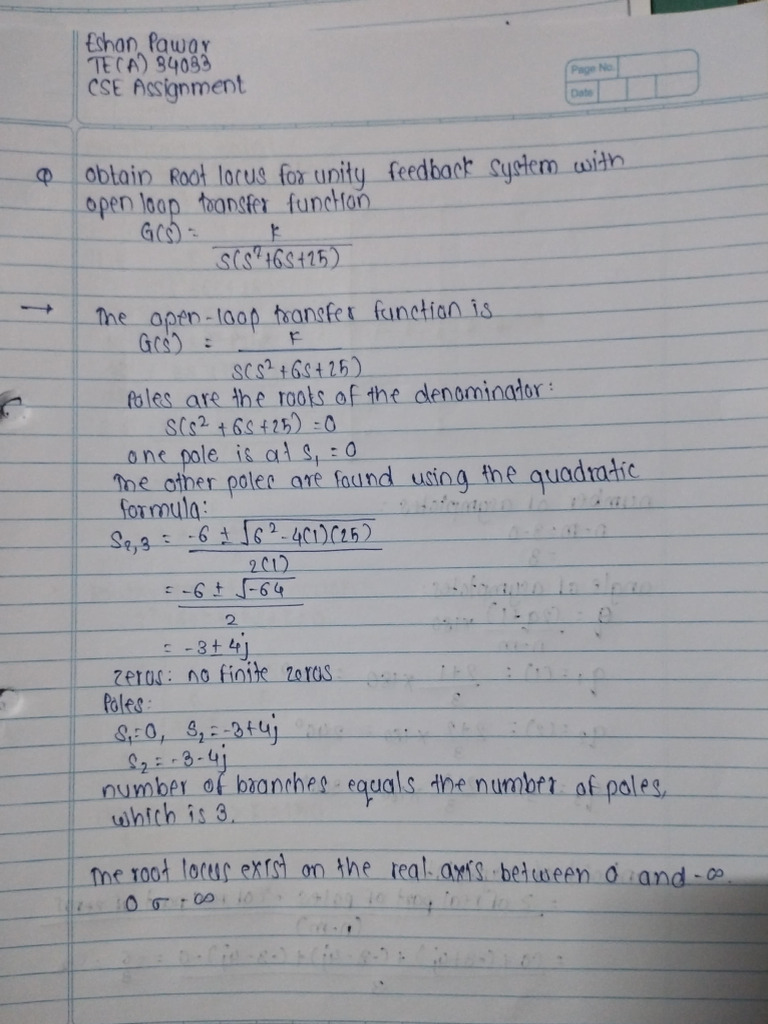 Eshan Pawar
TE(A) 34033
CSE Assignment
Page No.
Date
Q Obtain Root locus for unity feedback system with
open loop transfer function
G(s) = K
s(s²+6s+25)
→ The open-loop transfer function is
G(s) = K
s(s²+6s+25)
Poles are the roots of the denominator:
s(s²+6s+25)=0
one pole is at s₁ = 0
The other poles are found using the quadratic
formula:
s₂,₃ = -6 ± √6²-4(1)(25)
2(1)
= -6 ± √-64
2
= -3±4j
zeros: no finite zeros
Poles:
s₁=0, s₂=-3+4j
s₂=-3-4j
number of branches equals the number of poles,
which is 3.
The root locus exist on the real axis between 0 and -∞.
0 σ -∞